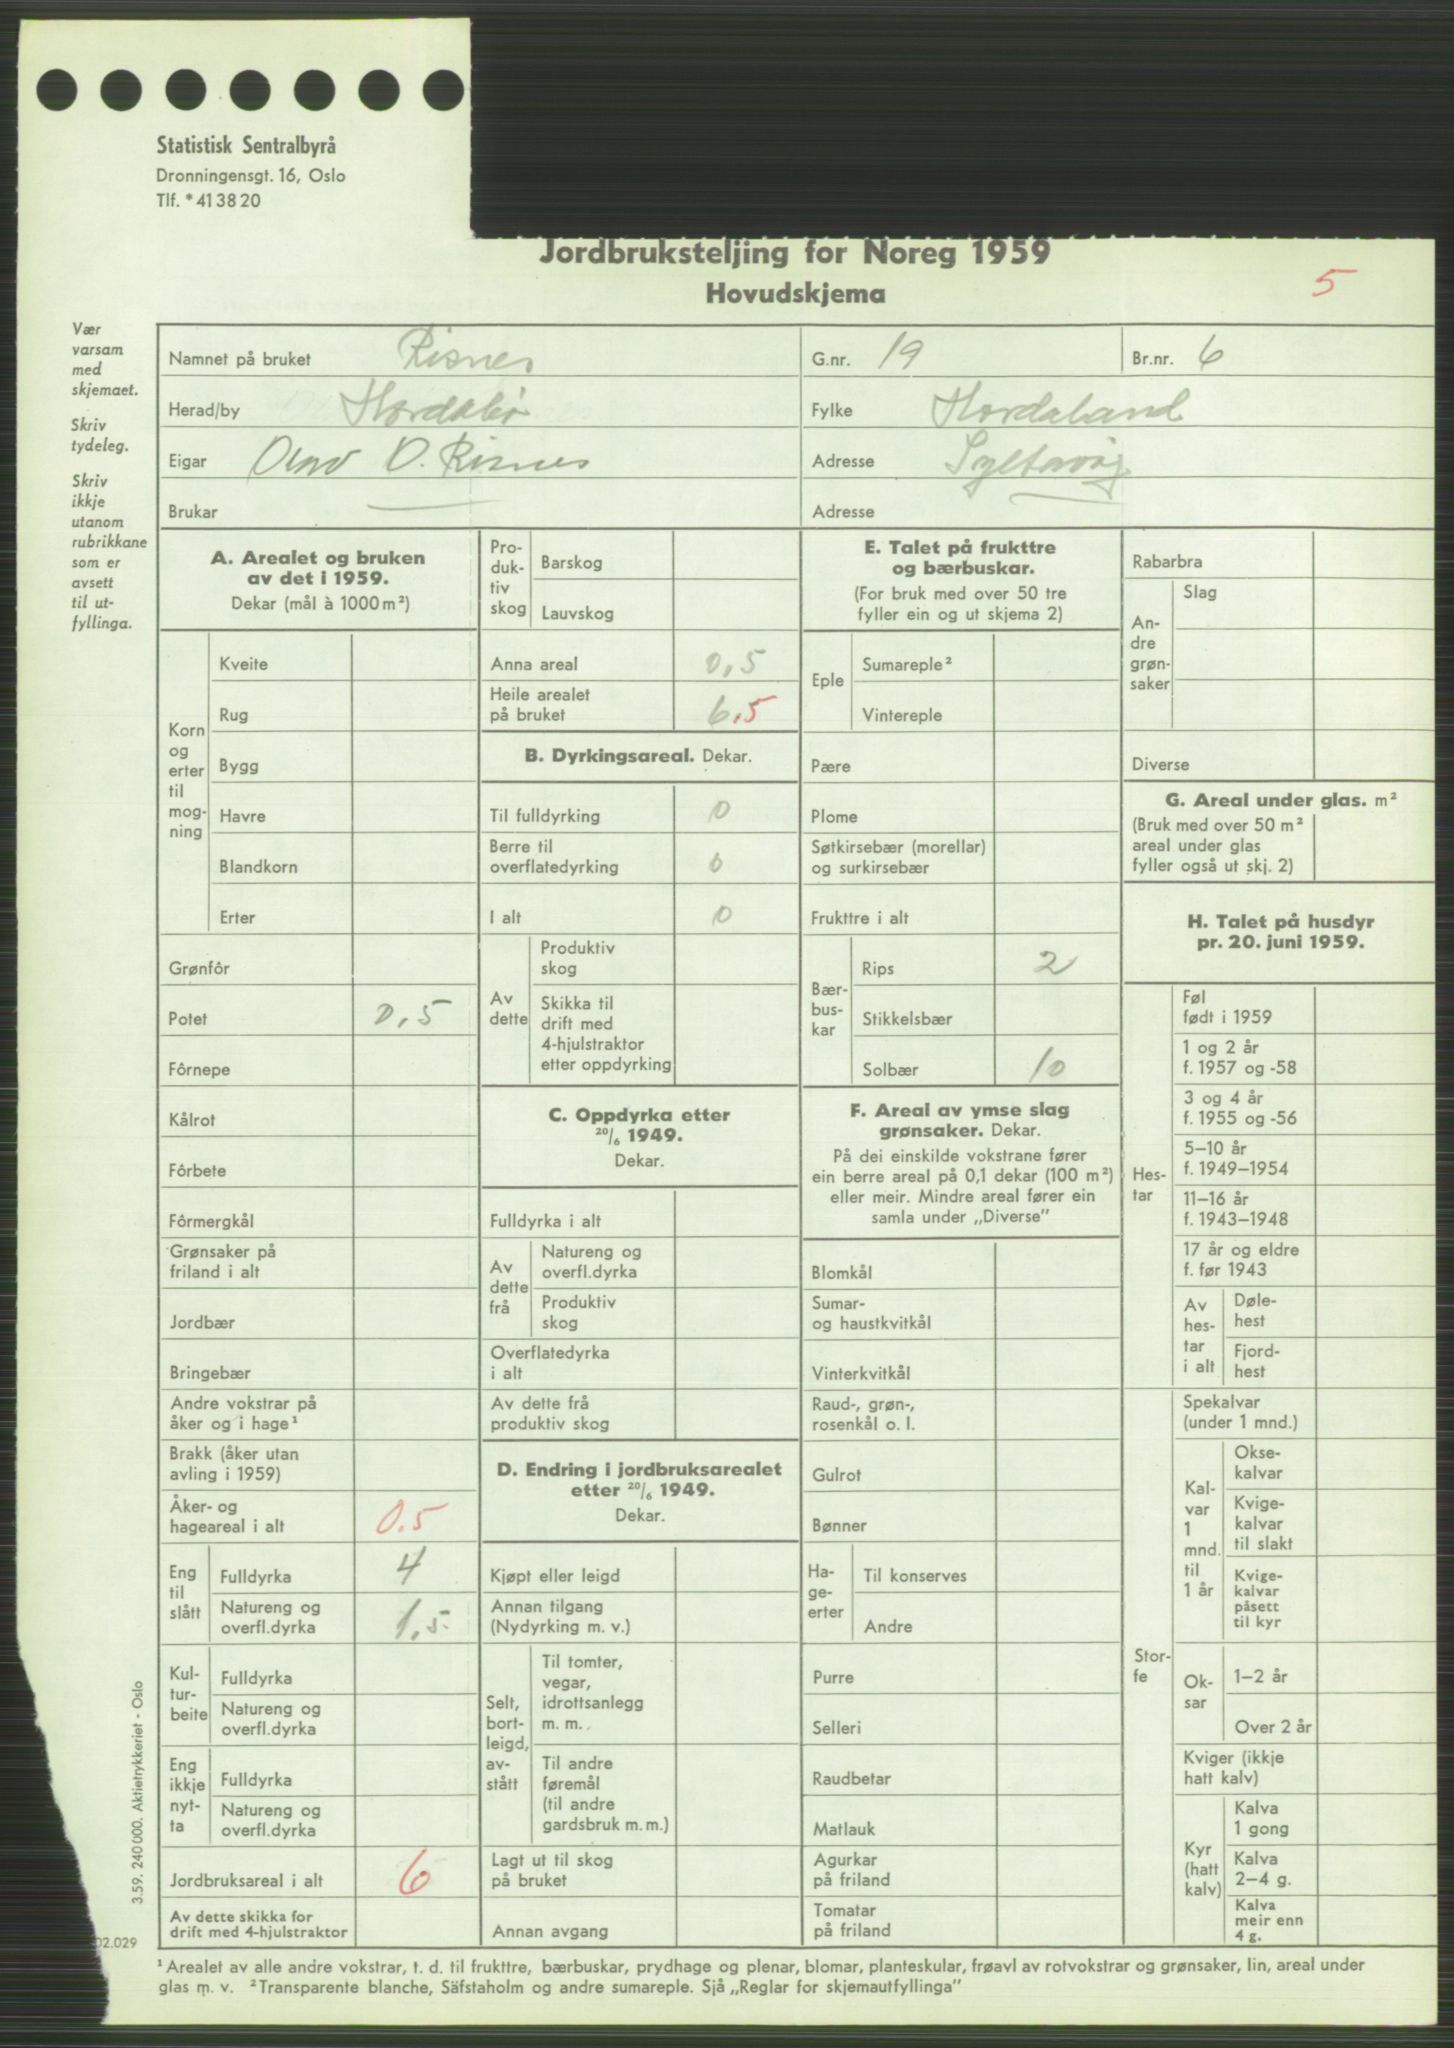 Statistisk Sentralbyrå
Dronningensgt. 16, Oslo
Tlf. * 41 38 20
Jordbruksteljing for Noreg 1959
Hovudskjema
5
Vær
varsam
med
skjemaet.
Skriv
tydeleg.
Skriv
ikkje
utanom
rubrikkane
som er
avsett
til ut-
fyllinga.
Namnet på bruket Risnes G.nr. 19 Br.nr. 6
Herad/by Hordabø Fylke Hordaland
Eigar Olav O. Risnes Adresse Syltavåg
Brukar Adresse
A. Arealet og bruken
av det i 1959.
Dekar (mål à 1000 m²)
Korn
og
erter
til
mog-
ning
Kveite
Rug
Bygg
Havre
Blandkorn
Erter
Grønfôr
Potet 0,5
Fôrnepe
Kålrot
Fôrbete
Fôrmergkål
Grønsaker på
friland i alt
Jordbær
Bringebær
Andre vokstrar på
åker og i hage¹
Brakk (åker utan
avling i 1959)
Åker- og
hageareal i alt 0.5
Eng
til
slått
Fulldyrka 4
Natureng og
overfl.dyrka 1,5
Kul-
tur-
beite
Fulldyrka
Natureng og
overfl.dyrka
Eng
ikkje
nyt-
ta
Fulldyrka
Natureng og
overfl.dyrka
Jordbruksareal i alt 6
Av dette skikka for
drift med 4-hjulstraktor
Pro-
duk-
tiv
skog
Barskog
Lauvskog
Anna areal 0,5
Heile arealet
på bruket 6.5
B. Dyrkingsareal. Dekar.
Til fulldyrking 0
Berre til
overflatedyrking 0
I alt 0
Av
dette
Produktiv
skog
Skikka til
drift med
4-hjulstraktor
etter oppdyrking
C. Oppdyrka etter
20/6 1949.
Dekar.
Fulldyrka i alt
Av
dette
frå
Natureng og
overfl.dyrka
Produktiv
skog
Overflatedyrka
i alt
Av dette frå
produktiv skog
D. Endring i jordbruksarealet
etter 20/6 1949.
Dekar.
Kjøpt eller leigd
Annan tilgang
(Nydyrking m. v.)
Selt,
bort-
leigd,
av-
stått
Til tomter,
vegar,
idrottsanlegg
m. m.
Til andre
føremål
(til andre
gardsbruk m. m.)
Lagt ut til skog
på bruket
Annan avgang
E. Talet på frukttre
og bærbuskar.
(For bruk med over 50 tre
fyller ein og ut skjema 2)
Eple
Sumareple²
Vintereple
Pære
Plome
Søtkirsebær (morellar)
og surkirsebær
Frukttre i alt
Bær-
bus-
kar
Rips 2
Stikkelsbær
Solbær 10
F. Areal av ymse slag
grønsaker. Dekar.
På dei einskilde vokstrane fører
ein berre areal på 0,1 dekar (100 m²)
eller meir. Mindre areal fører ein
samla under „Diverse”
Blomkål
Sumar-
og haustkvitkål
Vinterkvitkål
Raud-, grøn-,
rosenkål o. l.
Gulrot
Bønner
Ha-
ge-
erter
Til konserves
Andre
Purre
Selleri
Raudbetar
Matlauk
Agurkar
på friland
Tomatar
på friland
Rabarbra
An-
dre
grøn-
saker
Slag
Diverse
G. Areal under glas. m²
(Bruk med over 50 m²
areal under glas
fyller også ut skj. 2)
H. Talet på husdyr
pr. 20. juni 1959.
Hes-
tar
Føl
født i 1959
1 og 2 år
f. 1957 og -58
3 og 4 år
f. 1955 og -56
5–10 år
f. 1949–1954
11–16 år
f. 1943–1948
17 år og eldre
f. før 1943
Av
hes-
tar
i alt
Døle-
hest
Fjord-
hest
Stor-
fe
Spekalvar
(under 1 mnd.)
Kal-
var
1
mnd.
til
1 år
Okse-
kalvar
Kvige-
kalvar
til slakt
Kvige-
kalvar
påsett
til kyr
Ok-
sar
1–2 år
Over 2 år
Kviger (ikkje
hatt kalv)
Kyr
(hatt
kalv)
Kalva
1 gong
Kalva
2–4 g.
Kalva
meir enn
4 g.
3.59. 240 000. Aktietrykkeriet - Oslo
02.029
¹ Arealet av alle andre vokstrar, t. d. til frukttre, bærbuskar, prydhage og plenar, blomar, planteskular, frøavl av rotvokstrar og grønsaker, lin, areal under
glas m. v. ² Transparente blanche, Säfstaholm og andre sumareple. Sjå „Reglar for skjemautfyllinga”